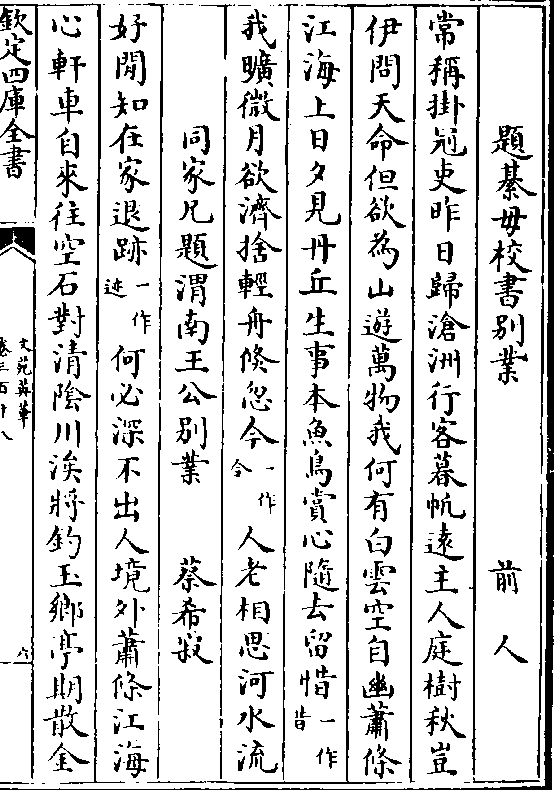 題綦毋校書別業　前人
常稱掛冠吏昨日歸滄洲行客暮帆逺主人庭樹秋豈
伊問天命但欲為山遊萬物我何有白雲空自幽蕭條
江海上日夕見丹丘生事本魚鳥賞心隨去留惜一作昔
我曠微月欲濟捨輕舟倐忽今一作令人老相思河水流
同家兄題渭南王公別業　蔡希寂
好閒知在家退跡一作迹何必深不出人境外蕭條江海
心軒車自來往空石對清陰川涘將釣玉鄉亭期散金
欽定四庫全書
文苑英華
卷三百十八
六